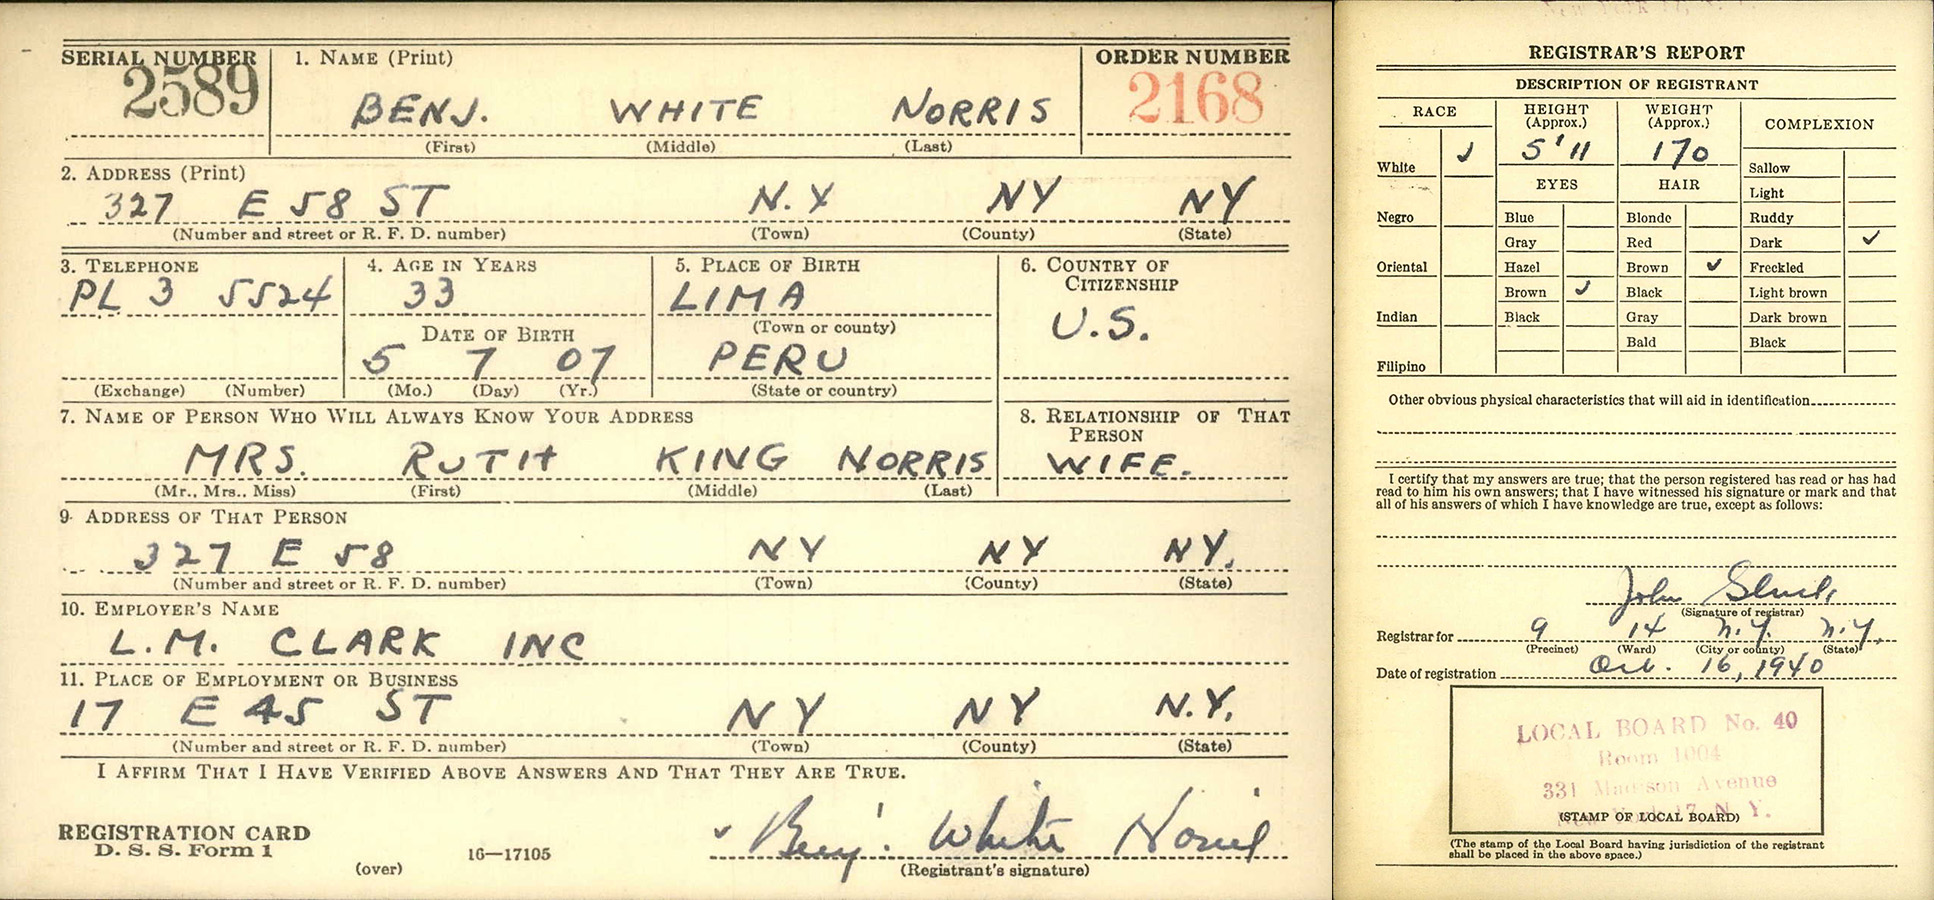 SERIAL NUMBER
2589
1. NAME (Print)
BENJ. WHITE NORRIS
(First) (Middle) (Last)
ORDER NUMBER
2168
2. ADDRESS (Print)
327 E 58 ST N.Y NY NY
(Number and street or R. F. D. number) (Town) (County) (State)
3. TELEPHONE
PL 3 5524
(Exchange) (Number)
4. AGE IN YEARS
33
DATE OF BIRTH
5 7 07
(Mo.) (Day) (Yr.)
5. PLACE OF BIRTH
LIMA
(Town or county)
PERU
(State or country)
6. COUNTRY OF
CITIZENSHIP
U.S.
7. NAME OF PERSON WHO WILL ALWAYS KNOW YOUR ADDRESS
MRS. RUTH KING NORRIS
(Mr., Mrs., Miss) (First) (Middle) (Last)
8. RELATIONSHIP OF THAT
PERSON
WIFE.
9. ADDRESS OF THAT PERSON
327 E 58 NY NY NY.
(Number and street or R. F. D. number) (Town) (County) (State)
10. EMPLOYER'S NAME
L.M. CLARK INC
11. PLACE OF EMPLOYMENT OR BUSINESS
17 E 45 ST NY NY N.Y.
(Number and street or R. F. D. number) (Town) (County) (State)
I AFFIRM THAT I HAVE VERIFIED ABOVE ANSWERS AND THAT THEY ARE TRUE.
REGISTRATION CARD
D. S. S. Form 1
(over)
16—17105
✓ Benj. White Norris
(Registrant's signature)
REGISTRAR'S REPORT
DESCRIPTION OF REGISTRANT
RACE
White ✓
Negro
Oriental
Indian
Filipino
HEIGHT
(Approx.)
5' 11
WEIGHT
(Approx.)
170
EYES
Blue
Gray
Hazel
Brown ✓
Black
HAIR
Blonde
Red
Brown ✓
Black
Gray
Bald
COMPLEXION
Sallow
Light
Ruddy
Dark ✓
Freckled
Light brown
Dark brown
Black
Other obvious physical characteristics that will aid in identification
I certify that my answers are true; that the person registered has read or has had
read to him his own answers; that I have witnessed his signature or mark and that
all of his answers of which I have knowledge are true, except as follows:
John
(Signature of registrar)
Registrar for 9 14 N.Y. N.Y.
(Precinct) (Ward) (City or county) (State)
Date of registration Oct. 16, 1940
LOCAL BOARD No. 40
Room 1004
331 Madison Avenue
N. Y.
(STAMP OF LOCAL BOARD)
(The stamp of the Local Board having jurisdiction of the registrant
shall be placed in the above space.)